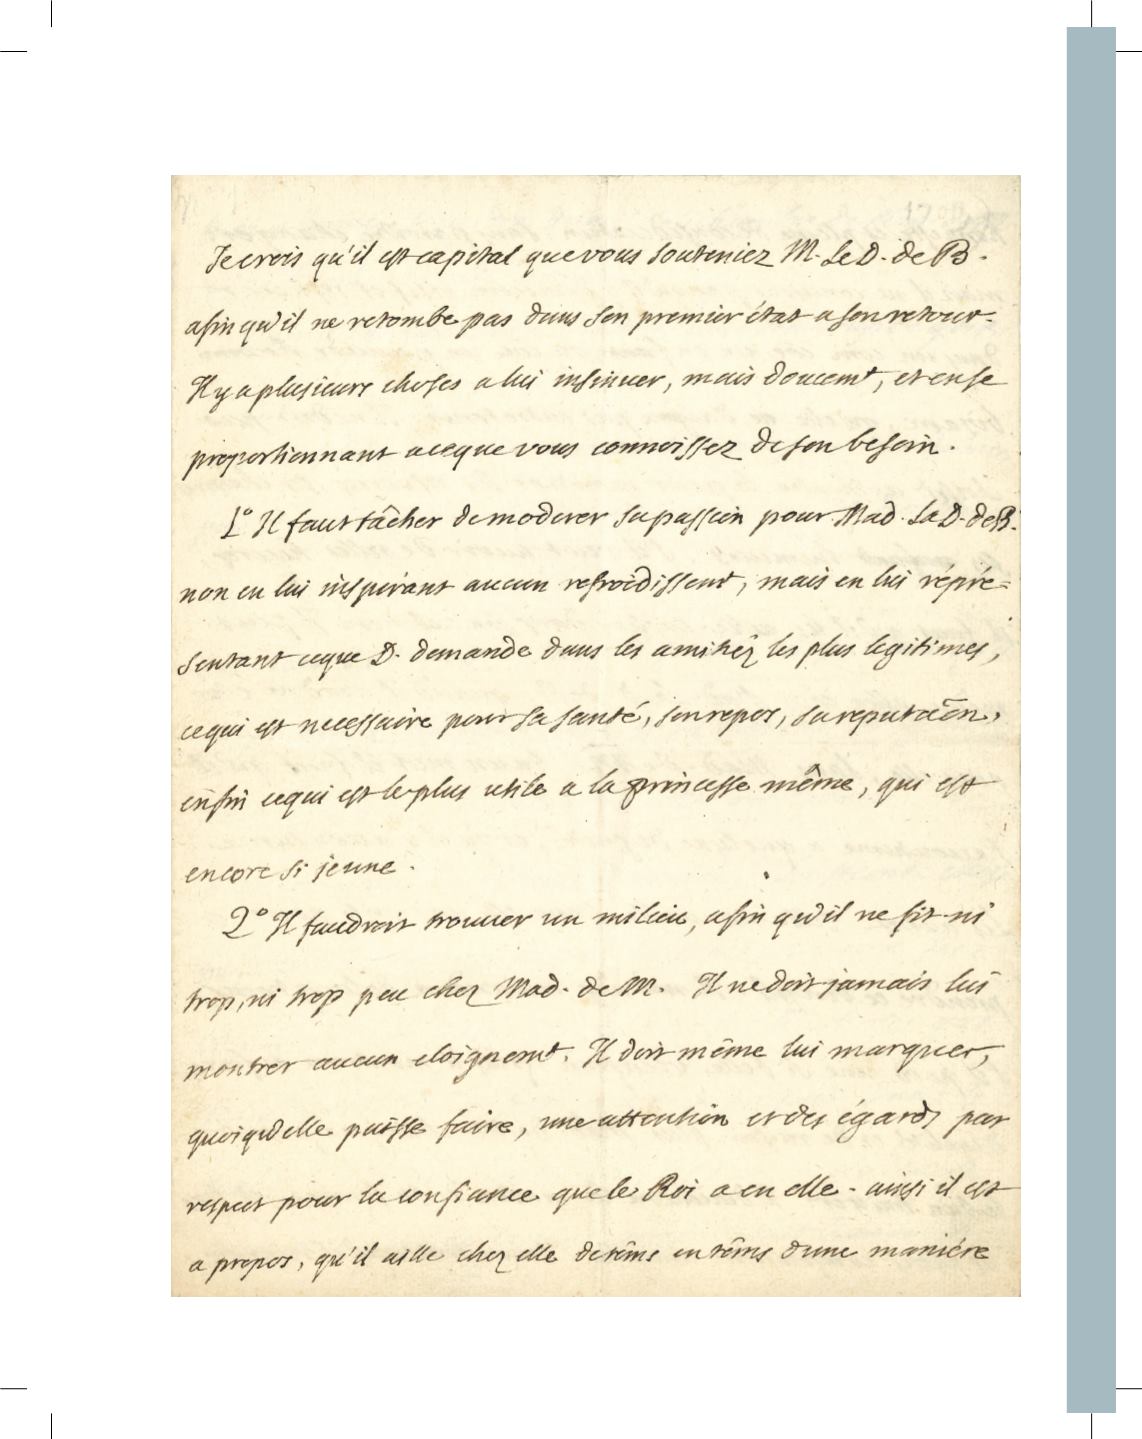 Je crois qu'il est capital que vous souteniez M. Le D. de B.
afin qu'il ne retombe pas dans son premier état a son retour.
Il y a plusieurs choses a lui insinuer, mais doucemt, et en se
proportionnant a ce que vous connoissez de son besoin.
1.º Il faut tâcher de moderer sa passion pour Mad. La D. de B.
non en lui inspirant aucun refroidissemt, mais en lui répre=
sentant ce que D. demande dans les amitiéz les plus legitimes,
ce qui est necessaire pour sa santé, son repos, sa reputaõn,
enfin ce qui est le plus utile a la princesse même, qui est
encore si jeune.
2º Il faudroit trouver un milieu, afin qu'il ne fit ni
trop, ni trop peu chez Mad. de M. Il ne doit jamais lui
montrer aucun eloignemt. Il doit même lui marquer,
quoiqu'elle puisse faire, une attention et des égards par
respect pour la confiance que le Roi a en elle. ainsi il est
a propos, qu'il aille chez elle de têms en têms d'une maniére